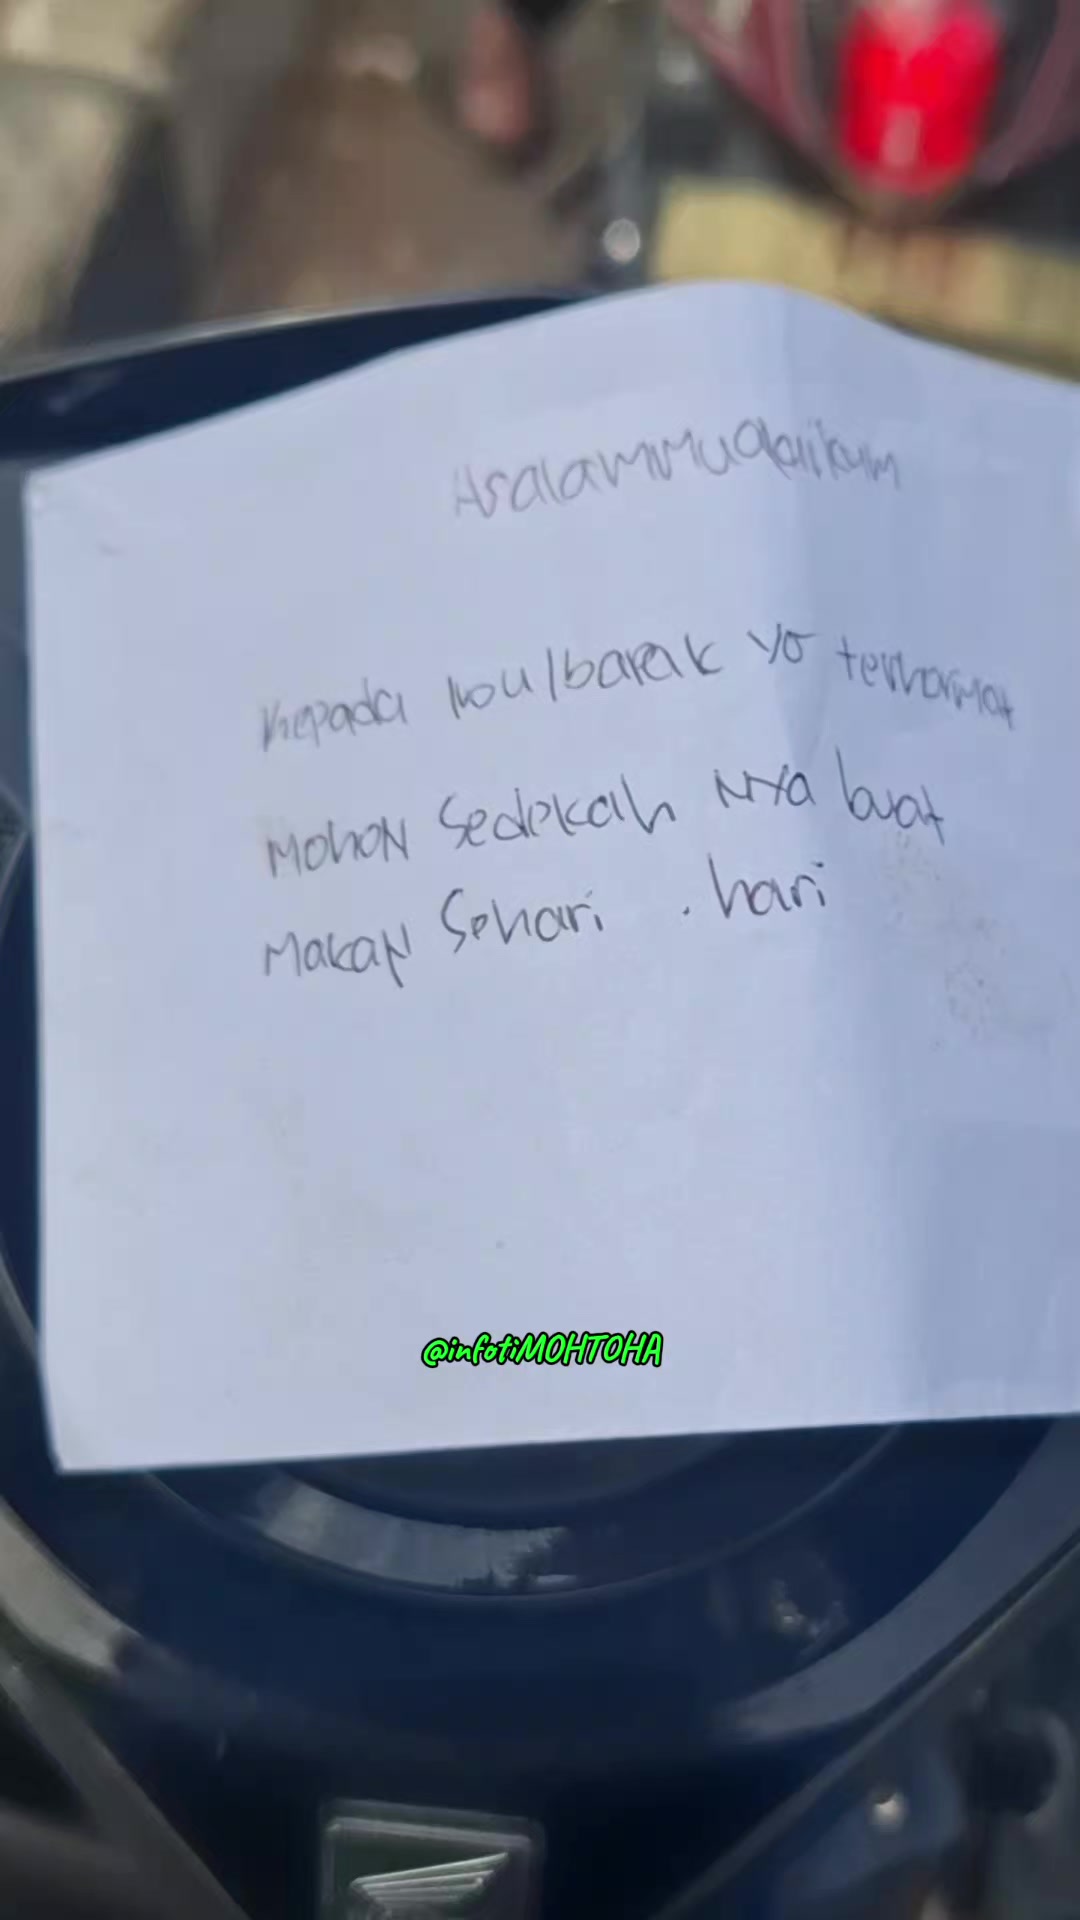 Asalammualaikum
Kepada Ibu/bapak yg terhormat
Mohon Sedekah Nya buat
Makan Sehari . hari
@infotiMOHTOHA